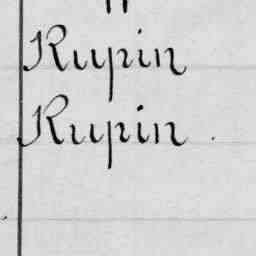 Rupin
Rupin .